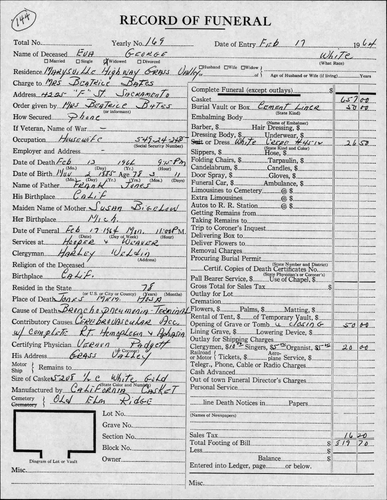 144
RECORD OF FUNERAL
Total No. Yearly No. 169 Date of Entry Feb 17 1964
Name of Deceased Eva George White
(What Race)
Married Single Widowed Divorced Husband Wife Widow
Age of Husband or Wife (if living) Years
Residence Marysville Highway Grass Valley
Charge to Mrs Beatrice Bates
Address 4225 "F" St. Sacramento
Order given by Mrs Beatrice Bates
(or informant)
How Secured Phone
If Veteran, Name of War -
Occupation Housewife
(Social Security Number)
Employer
Date of Death Feb 12
Date of Birth May 2 1885 Age 78
Name of Father Frank Jones
His Birthplace Calif
Maiden Name of Mother Susan Bigelow
Her Birthplace Mich.
Date of Funeral Feb 17 1964 Mon.
Services at Hooper & Weaver
Clergyman Harley
Religion of the Deceased
Birthplace Calif.
Resident in the 78
(U.S. or City or County)
Place of Death Jones Mem Hosp
Cause of Death Bronchopneumonia Terminal
Contributory Cause Cerebrovascular Acc.
w/ Complete Rt Hemiplegia & Aphasia
Certifying Physician Vernon Padgett
His Address Grass Valley
Motor
Ship Remains to
Size of Casket White
Manufactured by California Casket
Cemetery
Crematory Old Elm Ridge
Lot No.
Grave No.
Section No.
Block No.
Owner
Diagram of Lot or Vault
Misc.
Complete Funeral (except outlays) $
Casket 657 00
Burial Vault or Box Cement Liner 50 00
(Name of Embalmer)
Embalming Body
Barber, $ Hair Dressing, $
Dressing Body, $ Underwear, $
or Dress White 26 50
Slippers, $ Hose, $
Folding Chairs, $ Tarpaulin, $
Candelabrum, $ Candles, $
Door Spray, $ Gloves, $
Funeral Car, $ Ambulance, $
Limousines to Cemetery @ $
Extra Limousines @ $
Autos to R. R. Station @ $
Getting Remains from
Taking Remains to
Trip to Coroner's Inquest
Delivering Box to
Deliver Flowers to
Removal Charges
Procuring Burial Permit
Certif. Copies of Death Certificates No.
Pall Bearer Service, $ Use of Chapel, $
Gross Total for Sales Tax $
Outlay for Lot
Cremation
Flowers, $ Palms, $ Matting, $
Rental of Tent, $ of Temporary Vault, $
Opening of Grave or Tomb & Closing 50 00
Lining Grave, $ Lowering Device, $
Outlay for Shipping Charges
Clergyman, $ Singers, $ Organist, $ 20 00
Railroad
or Motor Tickets, $ Aeroplane Service, $
Telegr., Phone, Cable or Radio Charges
Cash Advanced
Out of town Funeral Director's Charges
Personal Service
line Death Notices in Papers
(Names of Newspapers)
Sales Tax 16 20
Total Footing of Bill $ 819 70
Less $
Balance $
Entered into Ledger, page or below.
Misc.